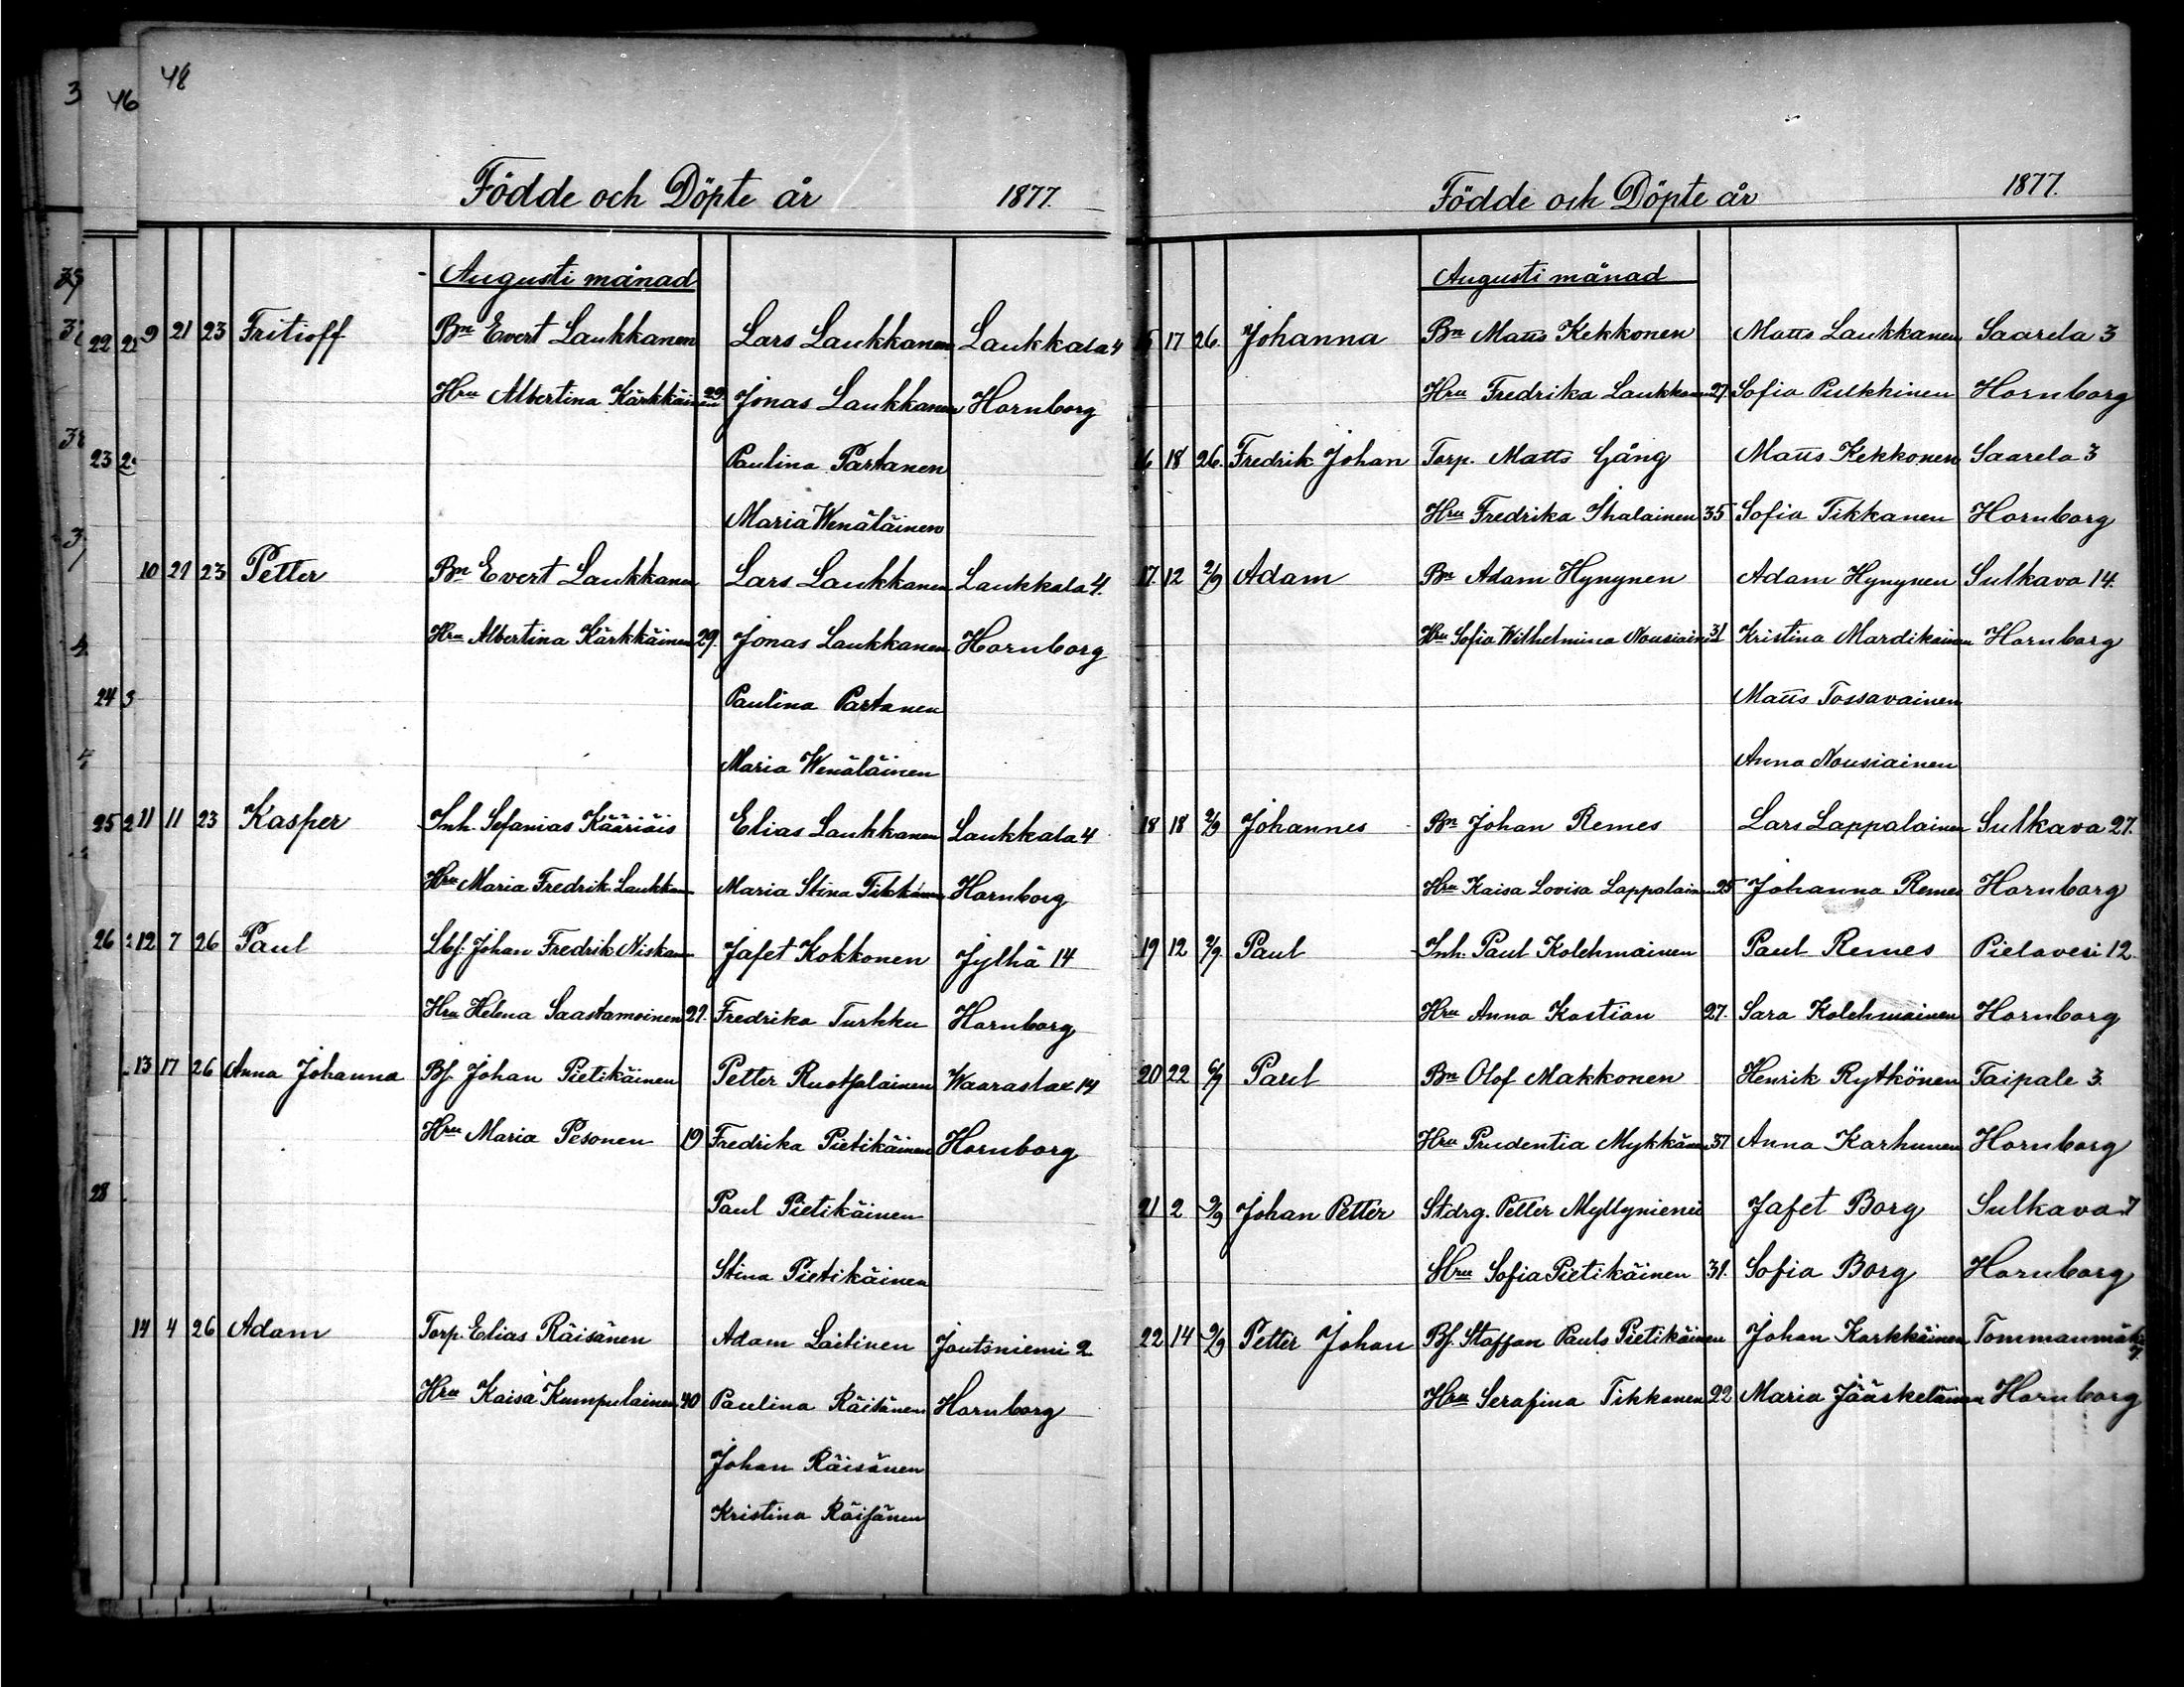 48
Födde och Döpte år 1877.
Augusti månad
9 21 23 Fritioff Bn Evert Laukkanen Lars Laukkanen Laukkala 4
Hru Albertina Kärkkäinen 29. Jonas Laukkanen Hornborg
Paulina Partanen
Maria Wenäläinen
10 21 23 Petter Bn Evert Laukkanen Lars Laukkanen Laukkala 4.
Hru Albertina Kärkkäinen 29. Jonas Laukkanen Hornborg
Paulina Partanen
Maria Wenäläinen
11 11 23 Kasper Inh. Sefanias Kääriäis Elias Laukkanen Laukkala 4
Hru Maria Fredrik. Laukkan Maria Stina Tikkanen Hornborg
12 7 26 Paul Lbf. Johan Fredrik Niskan Jafet Kokkonen Jylhä 14
Hru Helena Saastamoinen 27. Fredrika Turkku Hornborg
13 17 26 Anna Johanna Bf. Johan Pietikäinen Petter Ruotsalainen Waaraslax 14
Hru Maria Pesonen 19 Fredrika Pietikäinen Hornborg
Paul Pietikäinen
Stina Pietikäinen
14 4 26 Adam Torp. Elias Räisänen Adam Laitinen Joutsniemi 2
Hru Kaisa Kumpulainen 40 Paulina Räisänen Hornborg
Johan Räisänen
Kristina Räisänen
Födde och Döpte år 1877.
Augusti månad
15 17 26. Johanna Bn Matts Kekkonen Matts Laukkanen Saarela 3
Hru Fredrika Laukkanen 27. Sofia Pulkkinen Hornborg
16 18 26. Fredrik Johan Torp. Matts Gång Matts Kekkonen Saarela 3
Hru Fredrika Ihalainen 35 Sofia Tikkanen Hornborg
17. 12 2/9 Adam Bn Adam Hynynen Adam Hynynen Sulkava 14.
Hru Sofia Wilhelmina Nousiain 31 Kristina Mardikainen Hornborg
Matts Tossavainen
Anna Nousiainen
18 18 2/9 Johannes Bn Johan Remes Lars Lappalainen Sulkava 27.
Hru Kaisa Lovisa Lappalainen 25 Johanna Remes Hornborg
19 12 2/9. Paul Inh. Paul Kolehmainen Paul Remes Pielavesi 12.
Hru Anna Kastian 27. Sara Kolehmainen Hornborg
20 22 6/9 Paul Bn Olof Makkonen Henrik Rytkönen Taipale 3.
Hru Prudentia Mykkänen 37 Anna Karhunen Hornborg
21 2 9/9 Johan Petter Stdrg. Petter Myllyniemi Jafet Borg Sulkava 7
Hru Sofia Pietikäinen 31. Sofia Borg Hornborg
22 14 9/9 Petter Johan Bf. Staffan Pauls Pietikäinen Johan Karkkäinen Tommanmäki 7.
Hru Serafina Tikkanen 22 Maria Jääskeläinen Hornborg